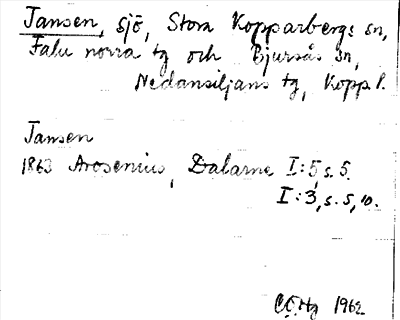 Jansen, sjö, Stora Kopparbergs sn,
Falu norra tg och Bjursås sn,
Nedansiljans tg, Kopp l.
Jansen
1863 Arosenius, Dalarne I:5, s. 5.
I:3, s. 5, 10.
1962